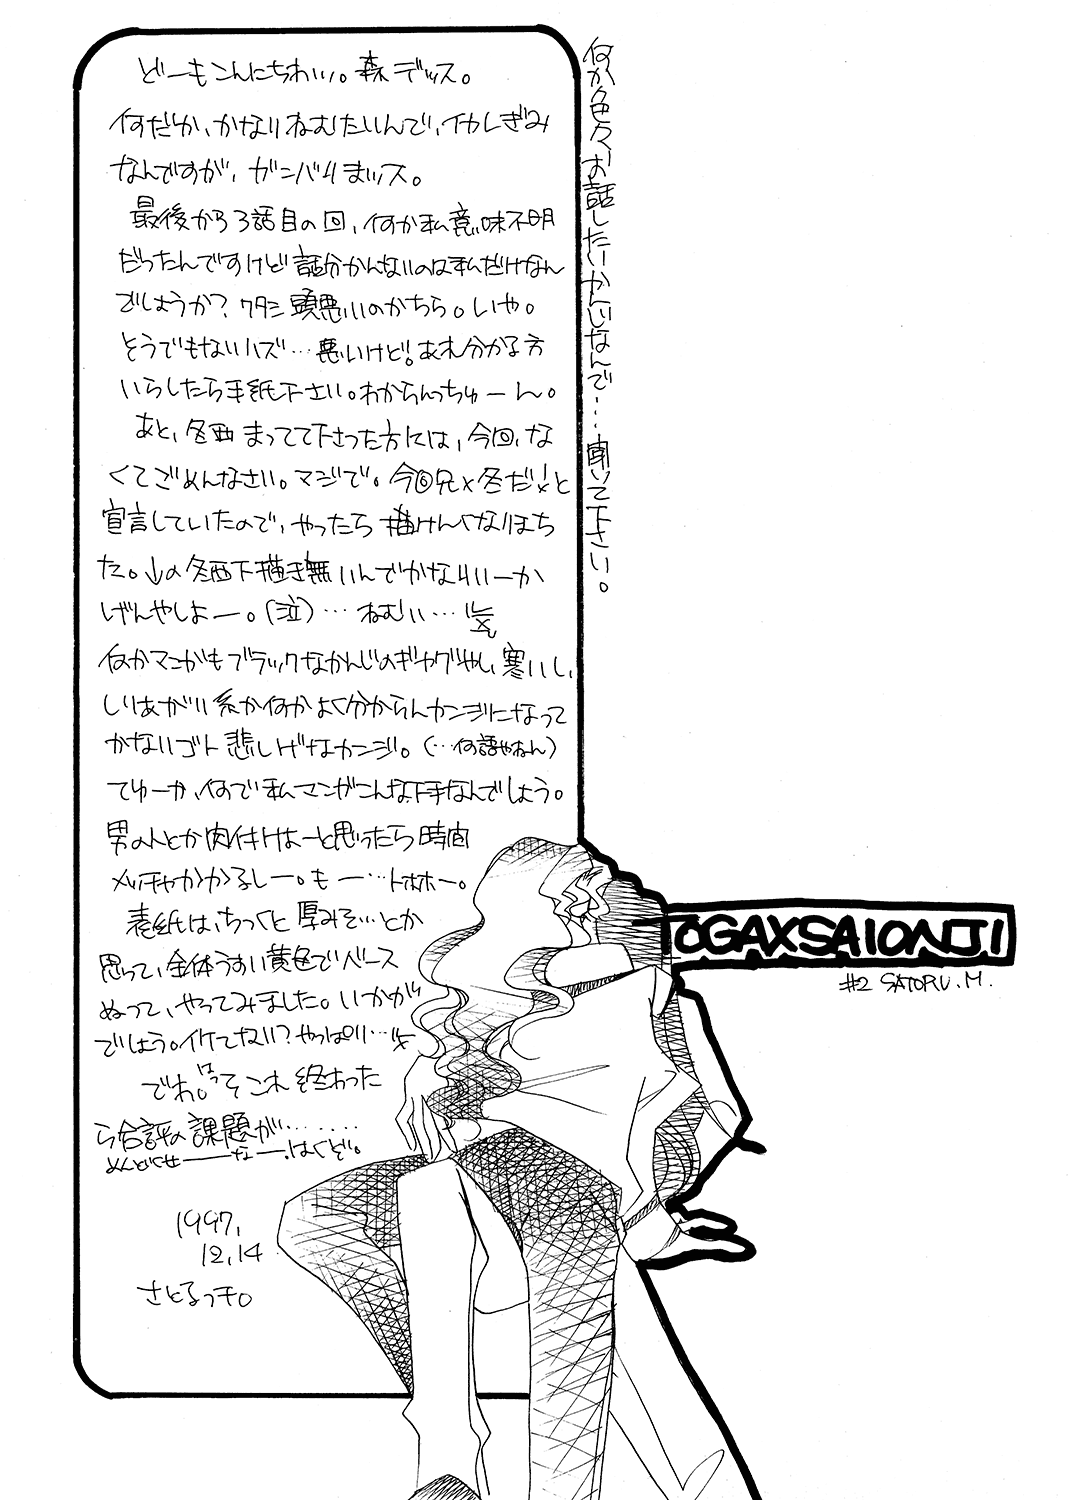 何か色々お話したいかんじなんで…聞いて下さい。
どーもこんにちわいい。森デッス。
何だか、かなりねむたいんで、イカレぎみ
なんですが、ガンバリまッス。
最後から3話目の回、何か私意味不明
だったんですけど話分かんないのは私だけなん
でしょうか?ワタシ頭悪いのかちら。いや。
そうでもないハズ…悪いけど!あれ分かる方
いらしたら手紙下さい。わからんっちゅーん。
あと、冬西まってて下さった方には、今回、な
くてごめんなさい。マジで。今回兄×冬だ!と
宣言していたので、やったら描けんくなりほち
た。↓の冬西下描き無いんでかなりいーか
げんやしよー。(泣)…ねむい…
何かマンガもブラックなかんじのギャグやし、寒いし、
しりあがり系か何かよく分からんカンジになって
かないゴト悲しげなカンジ。(…何語やねん)
てゆーか、何で私マンガこんな下手なんでしょう。
男の人とか肉付けよーと思ったら時間
メッチャかかるしー。もー…トホホー。
表紙は、ちっくと厚みそ…とか
思って、全体うすい黄色でベース
ぬって、やってみました。いかが
でしょう。イケてない?やっぱり…
でわ。はっそこれ終わった
ら合評の課題が………
めんどくせーーなー。はくど。
1997.
12.14
さとるっチ。
TOGAXSAIONJI
#2 SATORU.M.